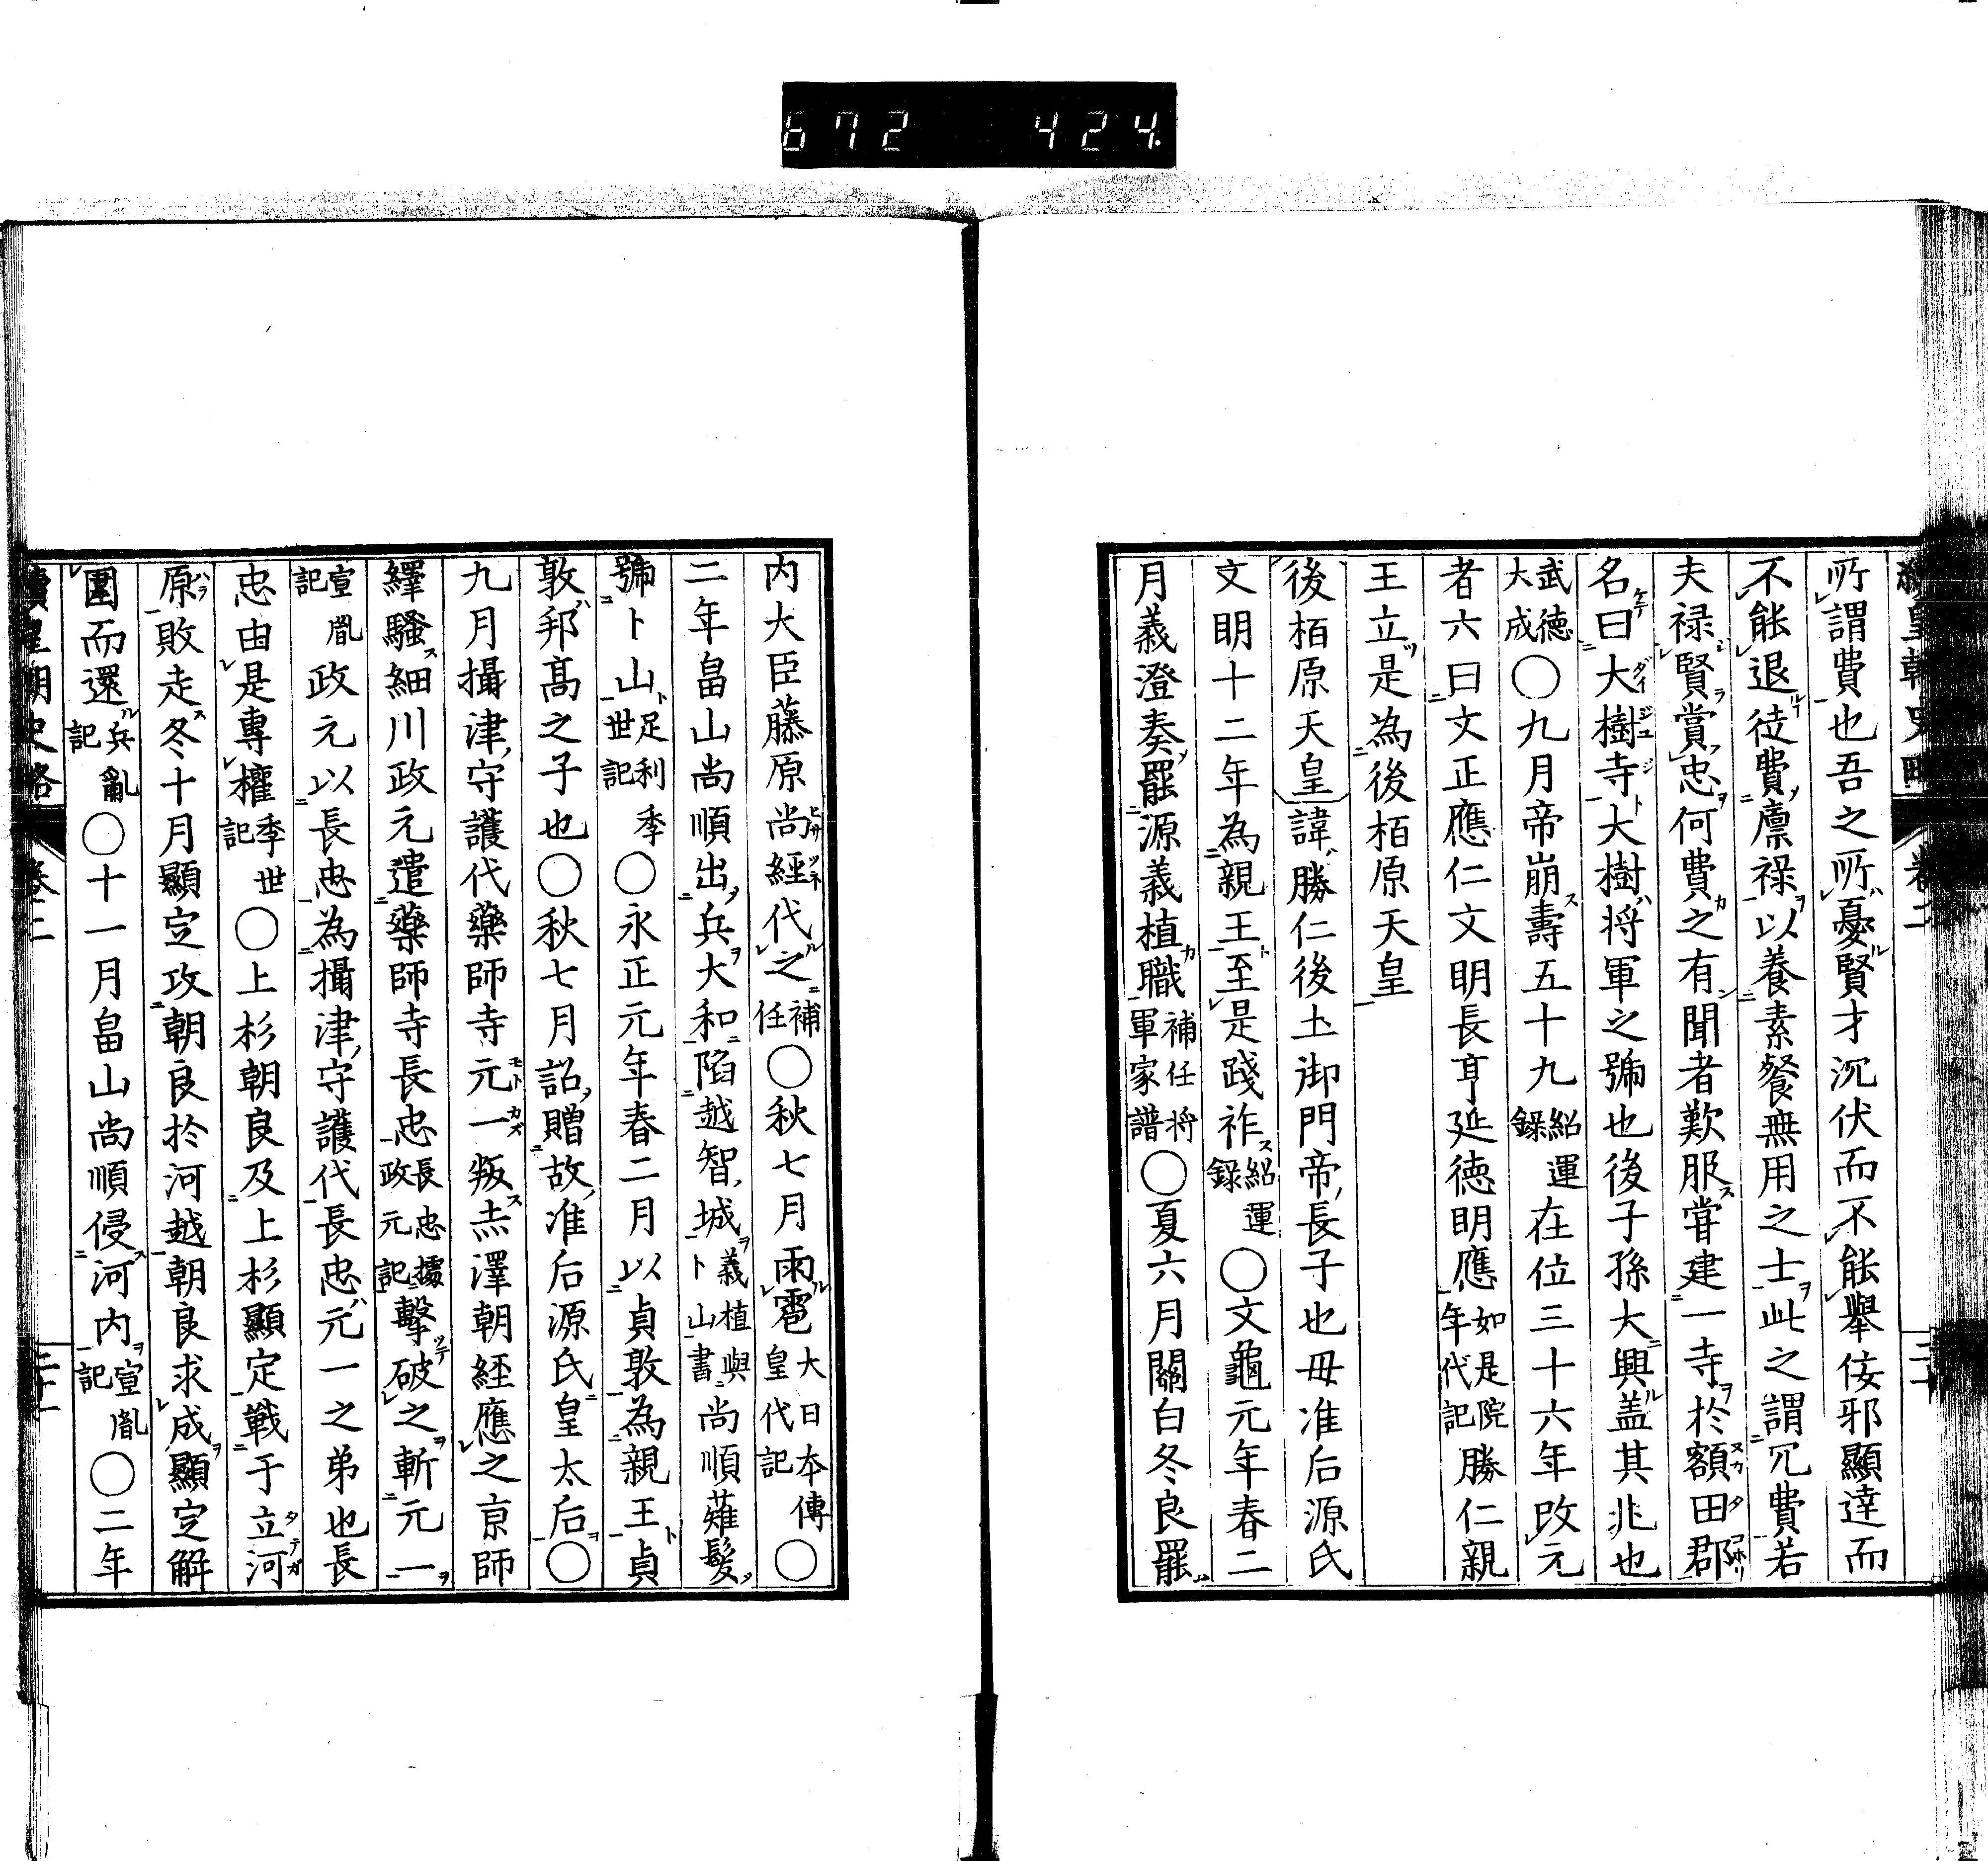 672 424.
續皇朝史略 卷二
所謂費也吾之所憂賢才沉伏而不能舉佞邪顯達而
不能退徒費廩祿以養素餐無用之士此之謂冗費若
夫祿賢賞忠何費之有聞者歎服嘗建一寺於額田郡
名曰大樹寺大樹將軍之號也後子孫大興盖其兆也
武德大成〇九月帝崩壽五十九紹運錄在位三十六年改元
者六曰文正應仁文明長亨延德明應如是院年代記勝仁親
王立是為後栢原天皇
後栢原天皇諱勝仁後土御門帝長子也母准后源氏
文明十二年為親王至是踐祚紹運錄〇文龜元年春二
月義澄奏罷源義植職補任將軍家譜〇夏六月關白冬良罷
内大臣藤原尚經代之補任〇秋七月雨雹大日本傳皇代記〇
二年畠山尚順出兵大和陷越智城義植與卜山書尚順薙髮
號卜山足利季世記〇永正元年春二月以貞敦為親王貞
敦邦高之子也〇秋七月詔贈故准后源氏皇太后〇
九月攝津守護代藥師寺元一叛赤澤朝経應之京師
繹騷細川政元遣藥師寺長忠長忠據政元記擊破之斬元一
宣胤記政元以長忠為攝津守護代長忠元一之弟也長
忠由是專權季世記〇上杉朝良及上杉顯定戰于立河
原敗走冬十月顯定攻朝良於河越朝良求成顯定解
圍而還兵亂記〇十一月畠山尚順侵河内宣胤記〇二年
續皇朝史略 卷二